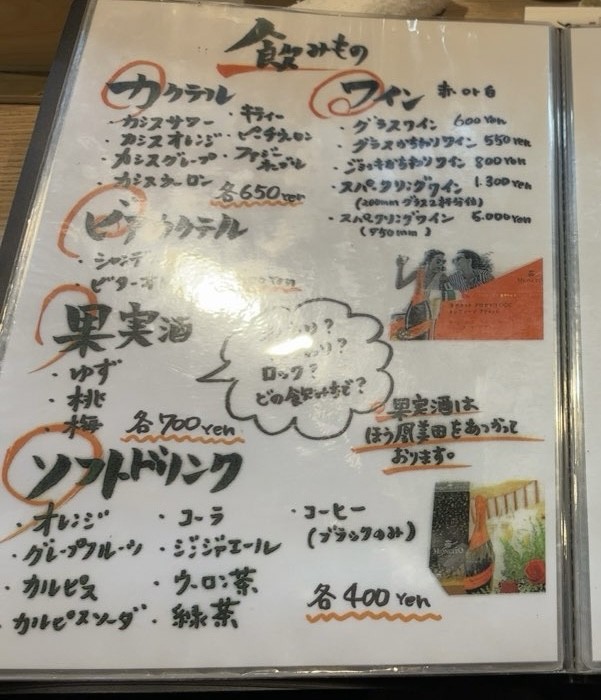 飲みもの
カクテル
・カシスサワー
・カシスオレンジ
・カシスグレープ
・カシスウーロン
・キティー
・ピーチウーロン
・ファジーネーブル
各650yen
ワイン 赤 or 白
・グラスワイン 600yen
・グラスかちわりワイン 550yen
・ジョッキかちわりワイン 800yen
・スパークリングワイン 1.300yen
(200mm グラス2杯分位)
・スパークリングワイン 5.000yen
(750mm)
ビアカクテル
・シャンデ
・ビター
果実酒
・ゆず
・桃
・梅
各700yen
ロック?
どの飲み方で?
果実酒は
ほう凰美田をあつかって
おります。
ソフトドリンク
・オレンジ
・グレープフルーツ
・カルピス
・カルピスソーダ
・コーラ
・ジンジャエール
・ウーロン茶
・緑茶
・コーヒー
(ブラックのみ)
各400yen